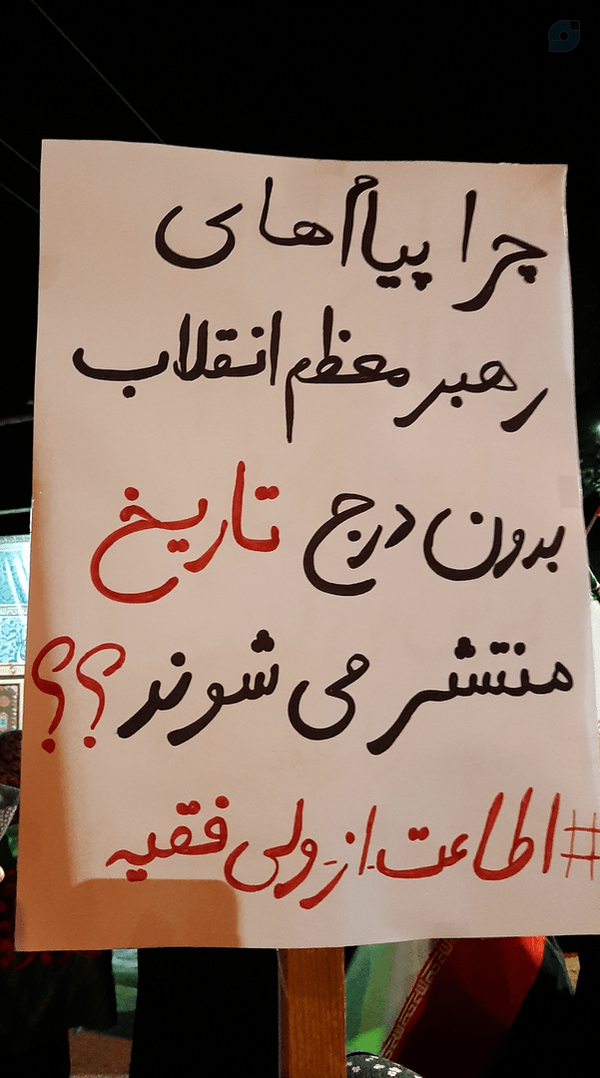 چرا پیام‌های
رهبر معظم انقلاب
بدون درج تاریخ
منتشر می شوند؟؟
#اطاعت_از_ولی_فقیه